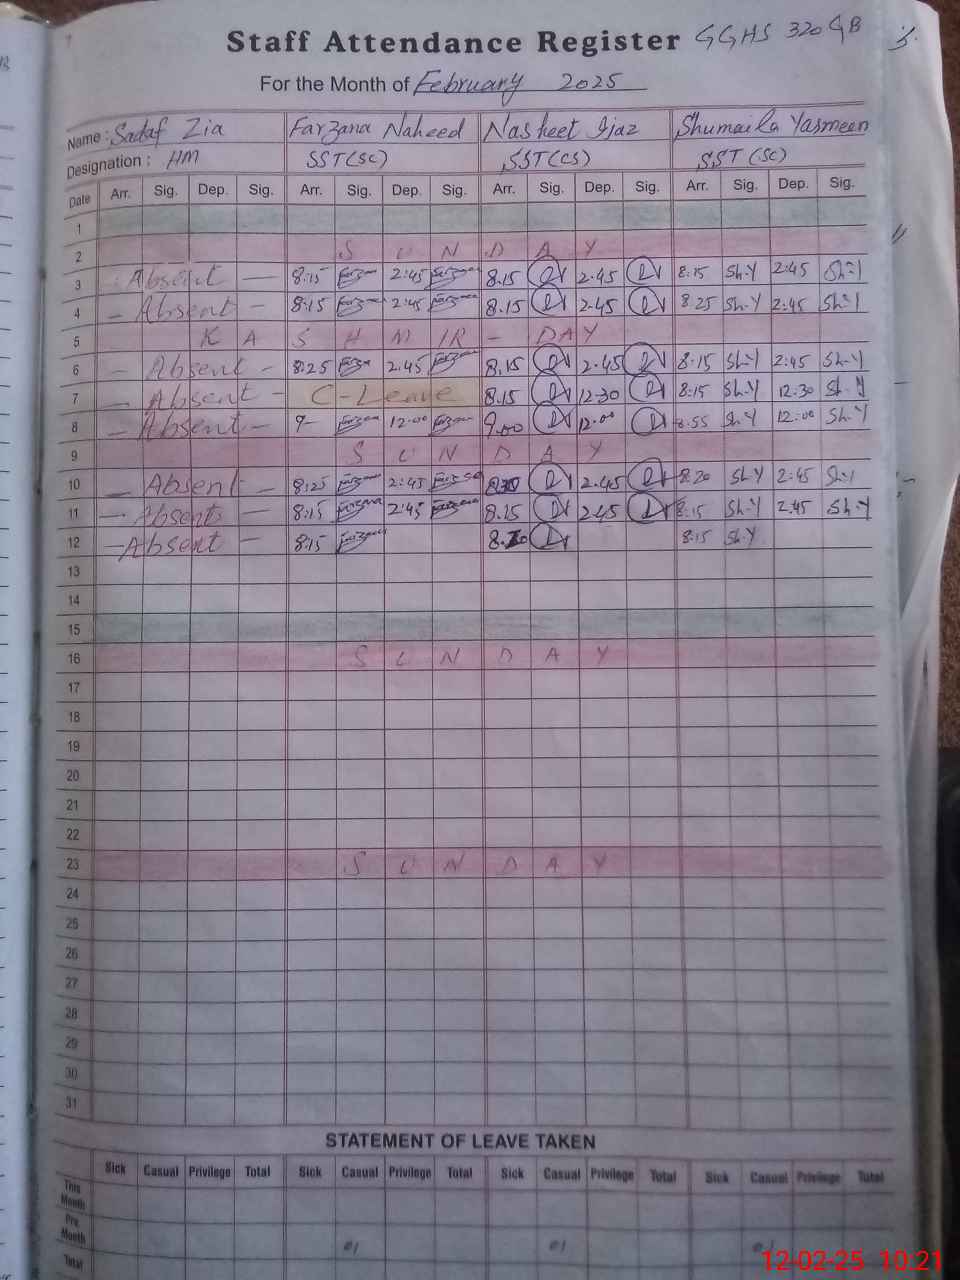 Staff Attendance Register GGHS 320 GB
For the Month of February 2025
Name : Sadaf Zia Farzana Naheed Nasheet Ijaz Shumaila Yasmeen
Designation : HM SST (SC) SST (CS) SST (SC)
Date Arr. Sig. Dep. Sig. Arr. Sig. Dep. Sig. Arr. Sig. Dep. Sig. Arr. Sig. Dep. Sig.
1
2 S U N D A Y
3 Absent — 8:15 2:45 8.15 2.45 8:15 Sh.Y 2:45 Sh-Y
4 — Absent — 8:15 2:45 8.15 2.45 8:25 Sh-Y 2:45 Sh-Y
5 K A S H M IR - DAY
6 — Absent — 8:25 2:45 8.15 2.45 8:15 Sh-Y 2:45 Sh-Y
7 — Absent — C-Leave 8.15 12.30 8:15 Sh-Y 12:30 Sh.Y
8 — Absent — 9- 12:00 9.00 12.00 8:55 Sh-Y 12:00 Sh-Y
9 S U N D A Y
10 — Absent — 8:25 2:45 2.45 8:20 Sh-Y 2:45 Sh-Y
11 — Absent — 8:15 2:45 8.15 2.45 8:15 Sh-Y 2:45 Sh-Y
12 — Absent — 8:15 8:15 Sh-Y
13
14
15
16 S U N D A Y
17
18
19
20
21
22
23 S U N D A Y
24
25
26
27
28
29
30
31
STATEMENT OF LEAVE TAKEN
Sick Casual Privilege Total Sick Casual Privilege Total Sick Casual Privilege Total Sick Casual Privilege Total
This Month
Pre. Month 01 01 01
Total
12-02-25 10:21